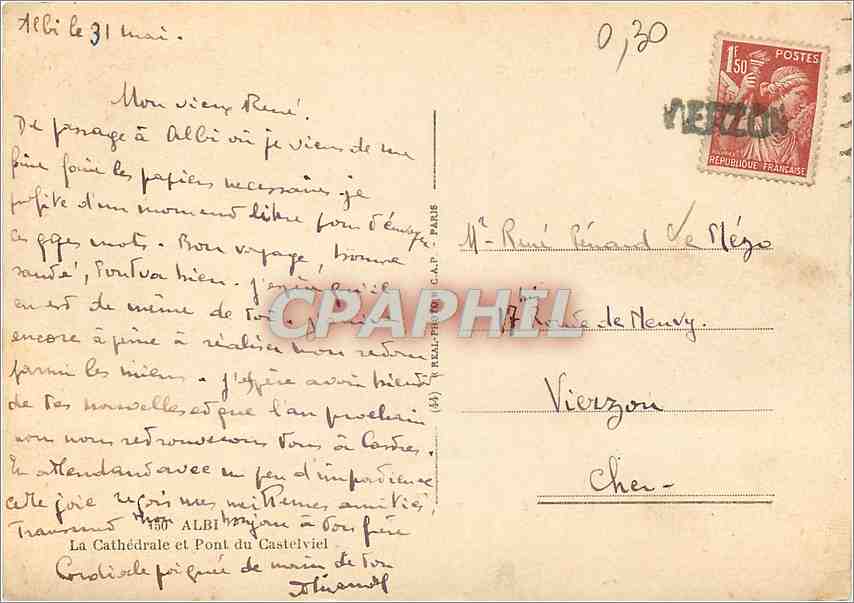 Albi le 31 mai.
0,30
1F50
POSTES
VIERZON
REPUBLIQUE FRANÇAISE
Mon vieux René.
De passage à Albi où je viens de me
faire faire les papiers necessaires. je
profite d'un moment libre pour t'envoyer
ces qques mots. Bon voyage, bonne
santé, tout va bien. J'espère qu'il
en est de même de toi.
encore à peine à réaliser mon retour
parmi les miens. J'espère avoir bientôt
de tes nouvelles et que l'an prochain
nous nous retrouverons tous à Castres.
En attendant avec un peu d'impatience
cette joie reçois mes meilleures amitiés,
Transmet mon bonjour à ton frère
Cordiale poignée de main de ton
150 ALBI
La Cathédrale et Pont du Castelviel
(44) REAL-PHOTO C.A.P. PARIS
CPAPHIL
Mr René Pénard
17 Route de Neuvy.
Vierzon
Cher